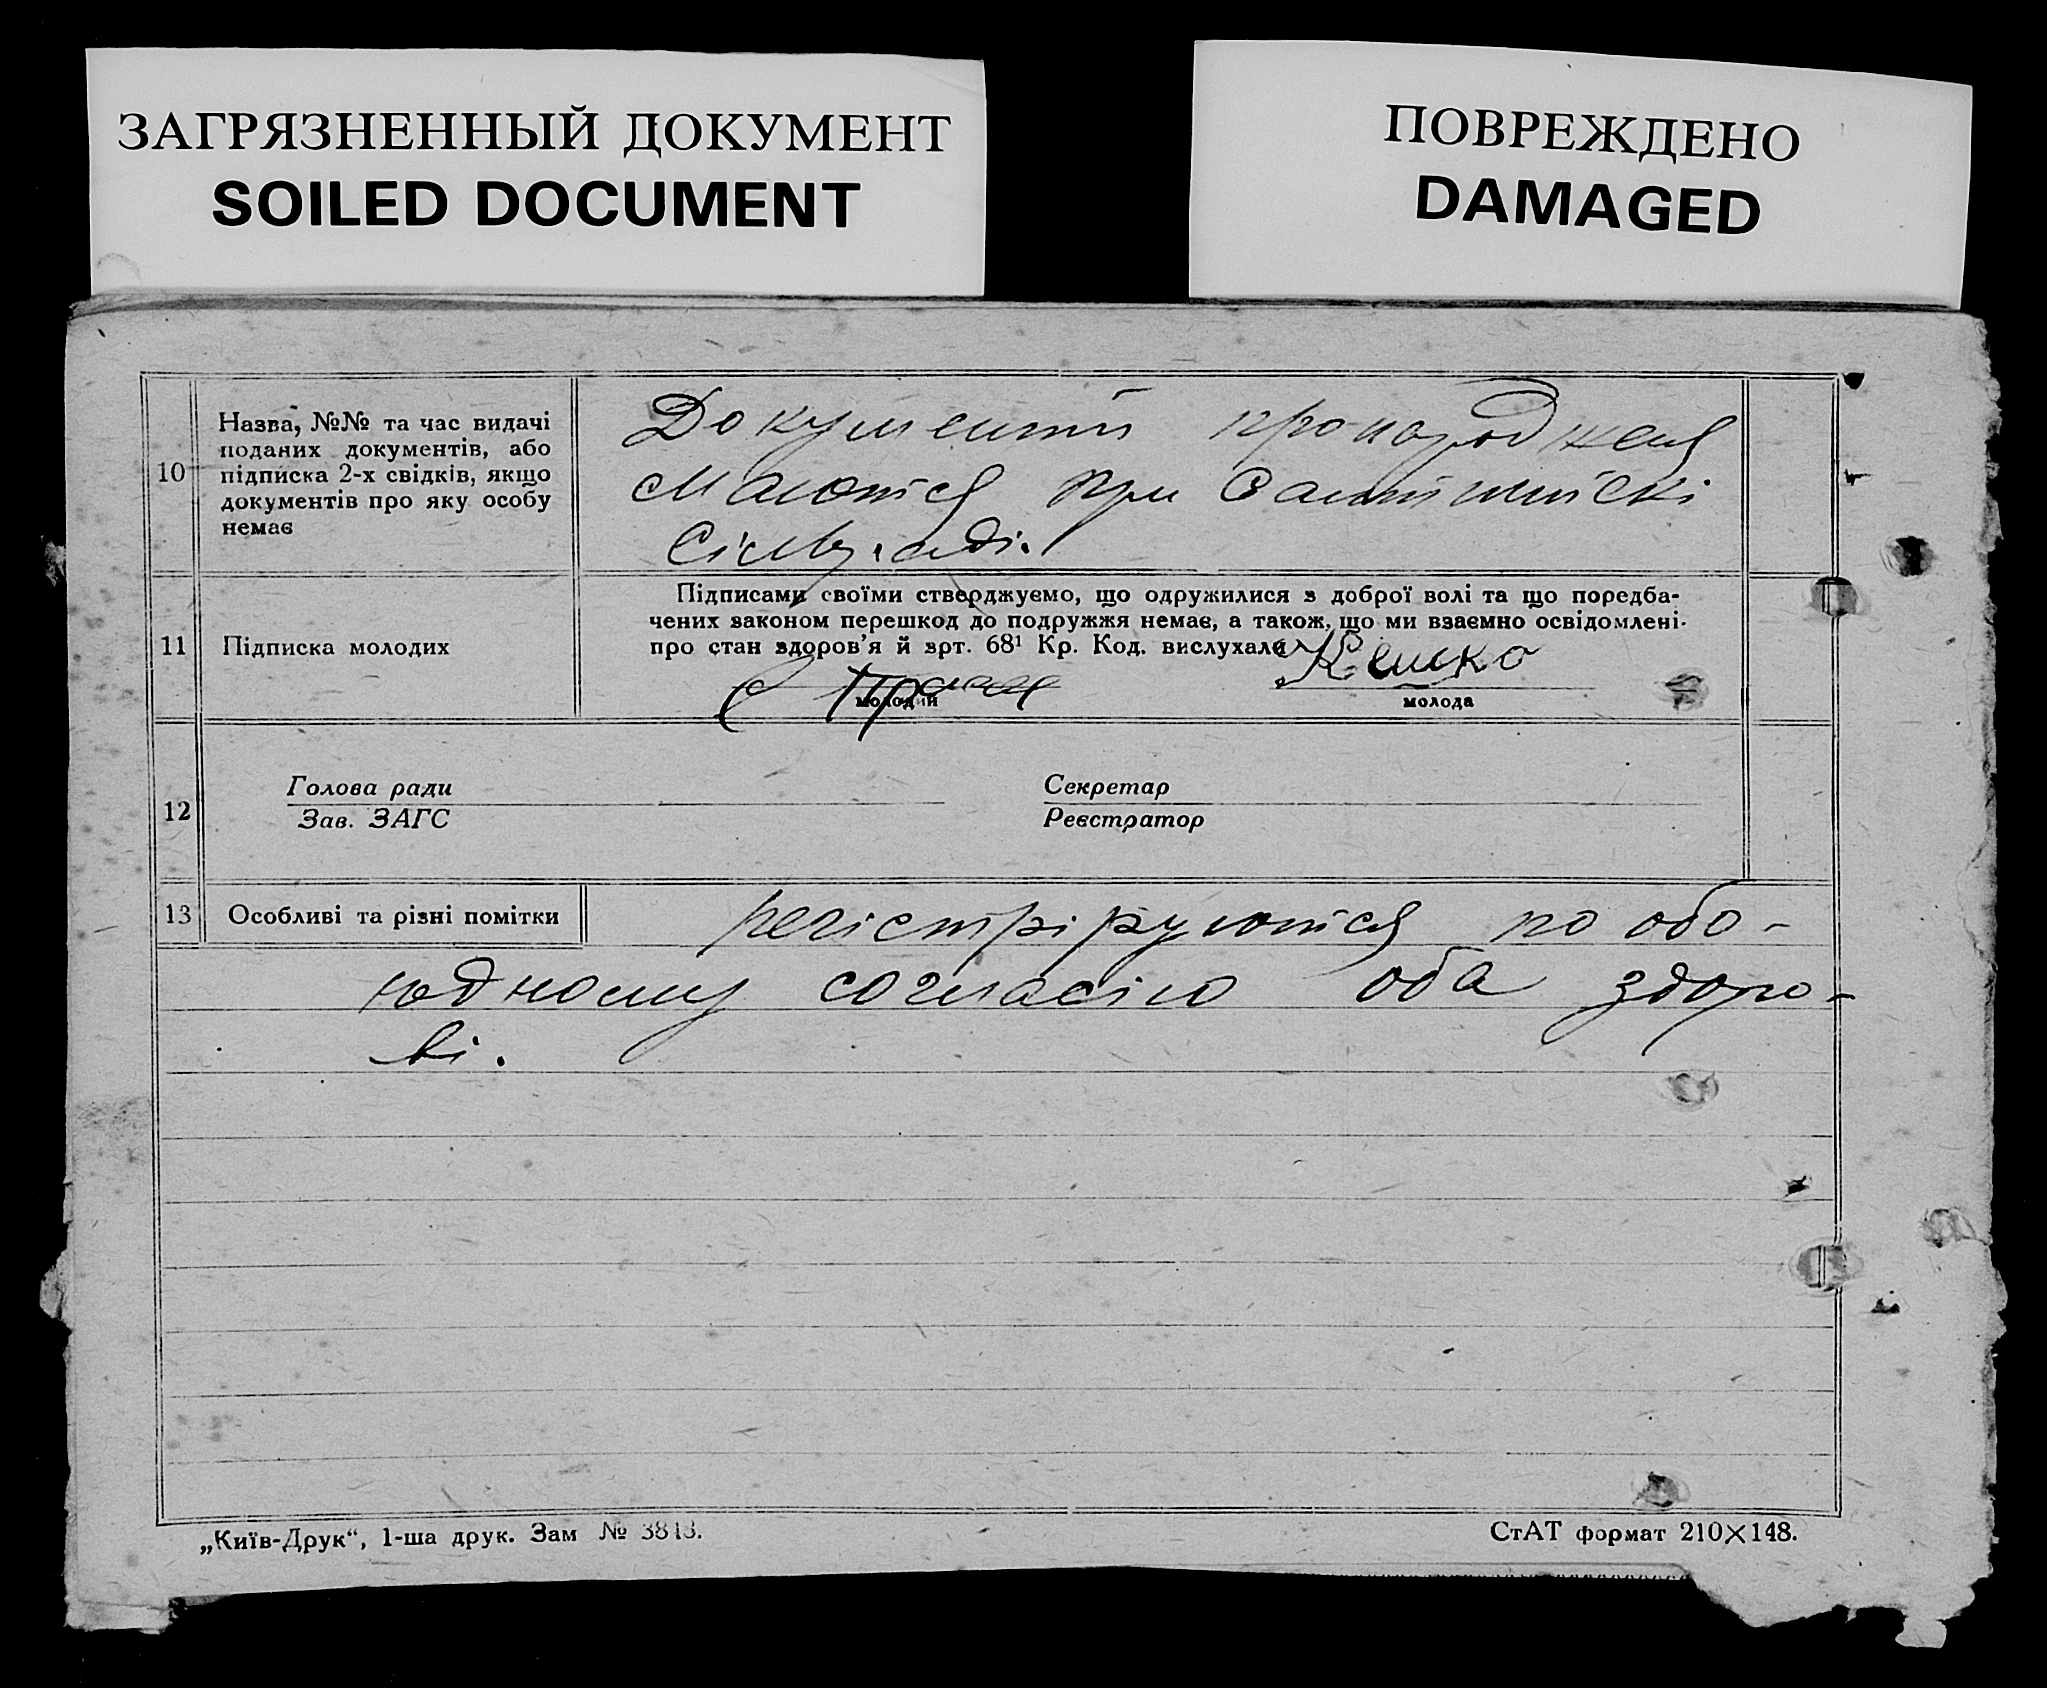 ЗАГРЯЗНЕННЫЙ ДОКУМЕНТ
SOILED DOCUMENT
ПОВРЕЖДЕНО
DAMAGED
10
Назва, №№ та час видачі
поданих документів, або
підписка 2-х свідків, якщо
документів про яку особу
немає
Документи про народженя
маются при
11
Підписка молодих
Підписами своїми стверджуємо, що одружилися з доброї волі та що поредба-
чених законом перешкод до подружжя немає, а також, що ми взаємно освідомлені
про стан здоров’я й зрт. 68¹ Кр. Код. вислухали
молодий
молода
12
Голова ради
Зав. ЗАГС
Секретар
Реєстратор
13
Особливі та різні помітки
регістріруются по обо-
юдному согласію оба здоро-
ві.
„Київ-Друк“, 1-ша друк. Зам № 3843.
СтАТ формат 210×148.